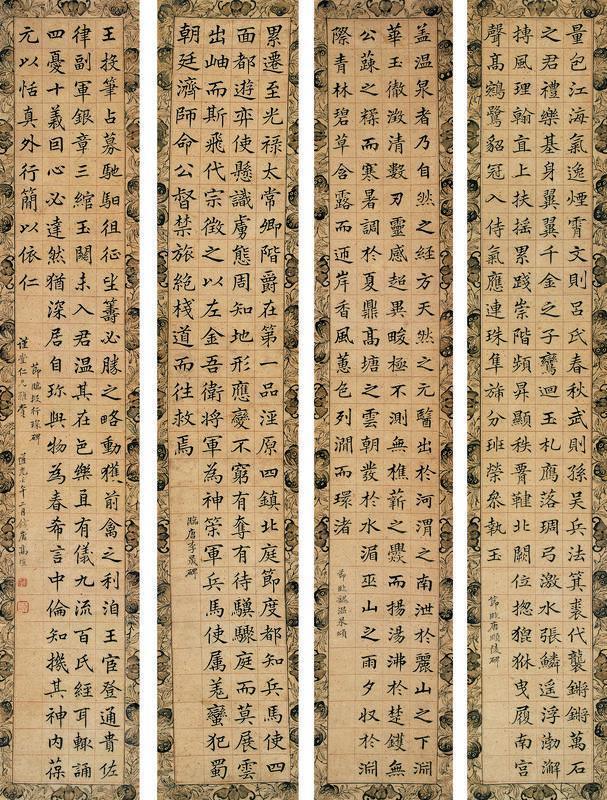 量包江海氣逸煙霄文則呂氏春秋武則孫吳兵法箕裘代襲鏘鏘萬石
之君禮樂基身翼翼千金之子鸞迴玉札鷹落琱弓激水張鱗遥浮渤澥
摶風理翰宜上扶摇累踐崇階頻昇顯秩胥韡北闕位揔猊狘曳履南宫
聲高鵷鷺貂冠入侍氣應連珠隼旆分班榮叅執玉
節臨唐順陵碑
盖温泉者乃自然之経方天然之元醫出於河渭之南泄於麗山之下淵
華玉徹激清數刃靈感超異畯極不測無樵薪之爨而揚湯沸於楚鑊無
公蔬之糅而寒暑調於夏鼎高塘之雲朝發於水湄巫山之雨夕収於淵
際青林碧草含露而迊岸香風蕙色列澗而環渚
節臨魏温泉頌
累遷至光禄太常卿階爵在第一品涇原四鎮北庭節度都知兵馬使四
面都遊弈使懸識虜態周知地形應變不窮有奪有待驥騄庭而莫展雲
出岫而斯飛代宗徴之以左金吾衛將軍為神策軍兵馬使属羌蠻犯蜀
朝廷濟師命公督禁旅絶棧道而往救焉
臨唐李晟碑
王投筆占募馳馹徂征坐籌必勝之略動獲前禽之利洎王官登通貴佐
律副軍銀章三綰玉闕未入君温其在邑樂且有儀九流百氏経耳輙誦
四憂十義因心必達然猶深居自珎與物為春希言中倫知機其神内葆
元以恬真外行簡以依仁
節臨
行琛碑
謹堂仁兄雅鑒